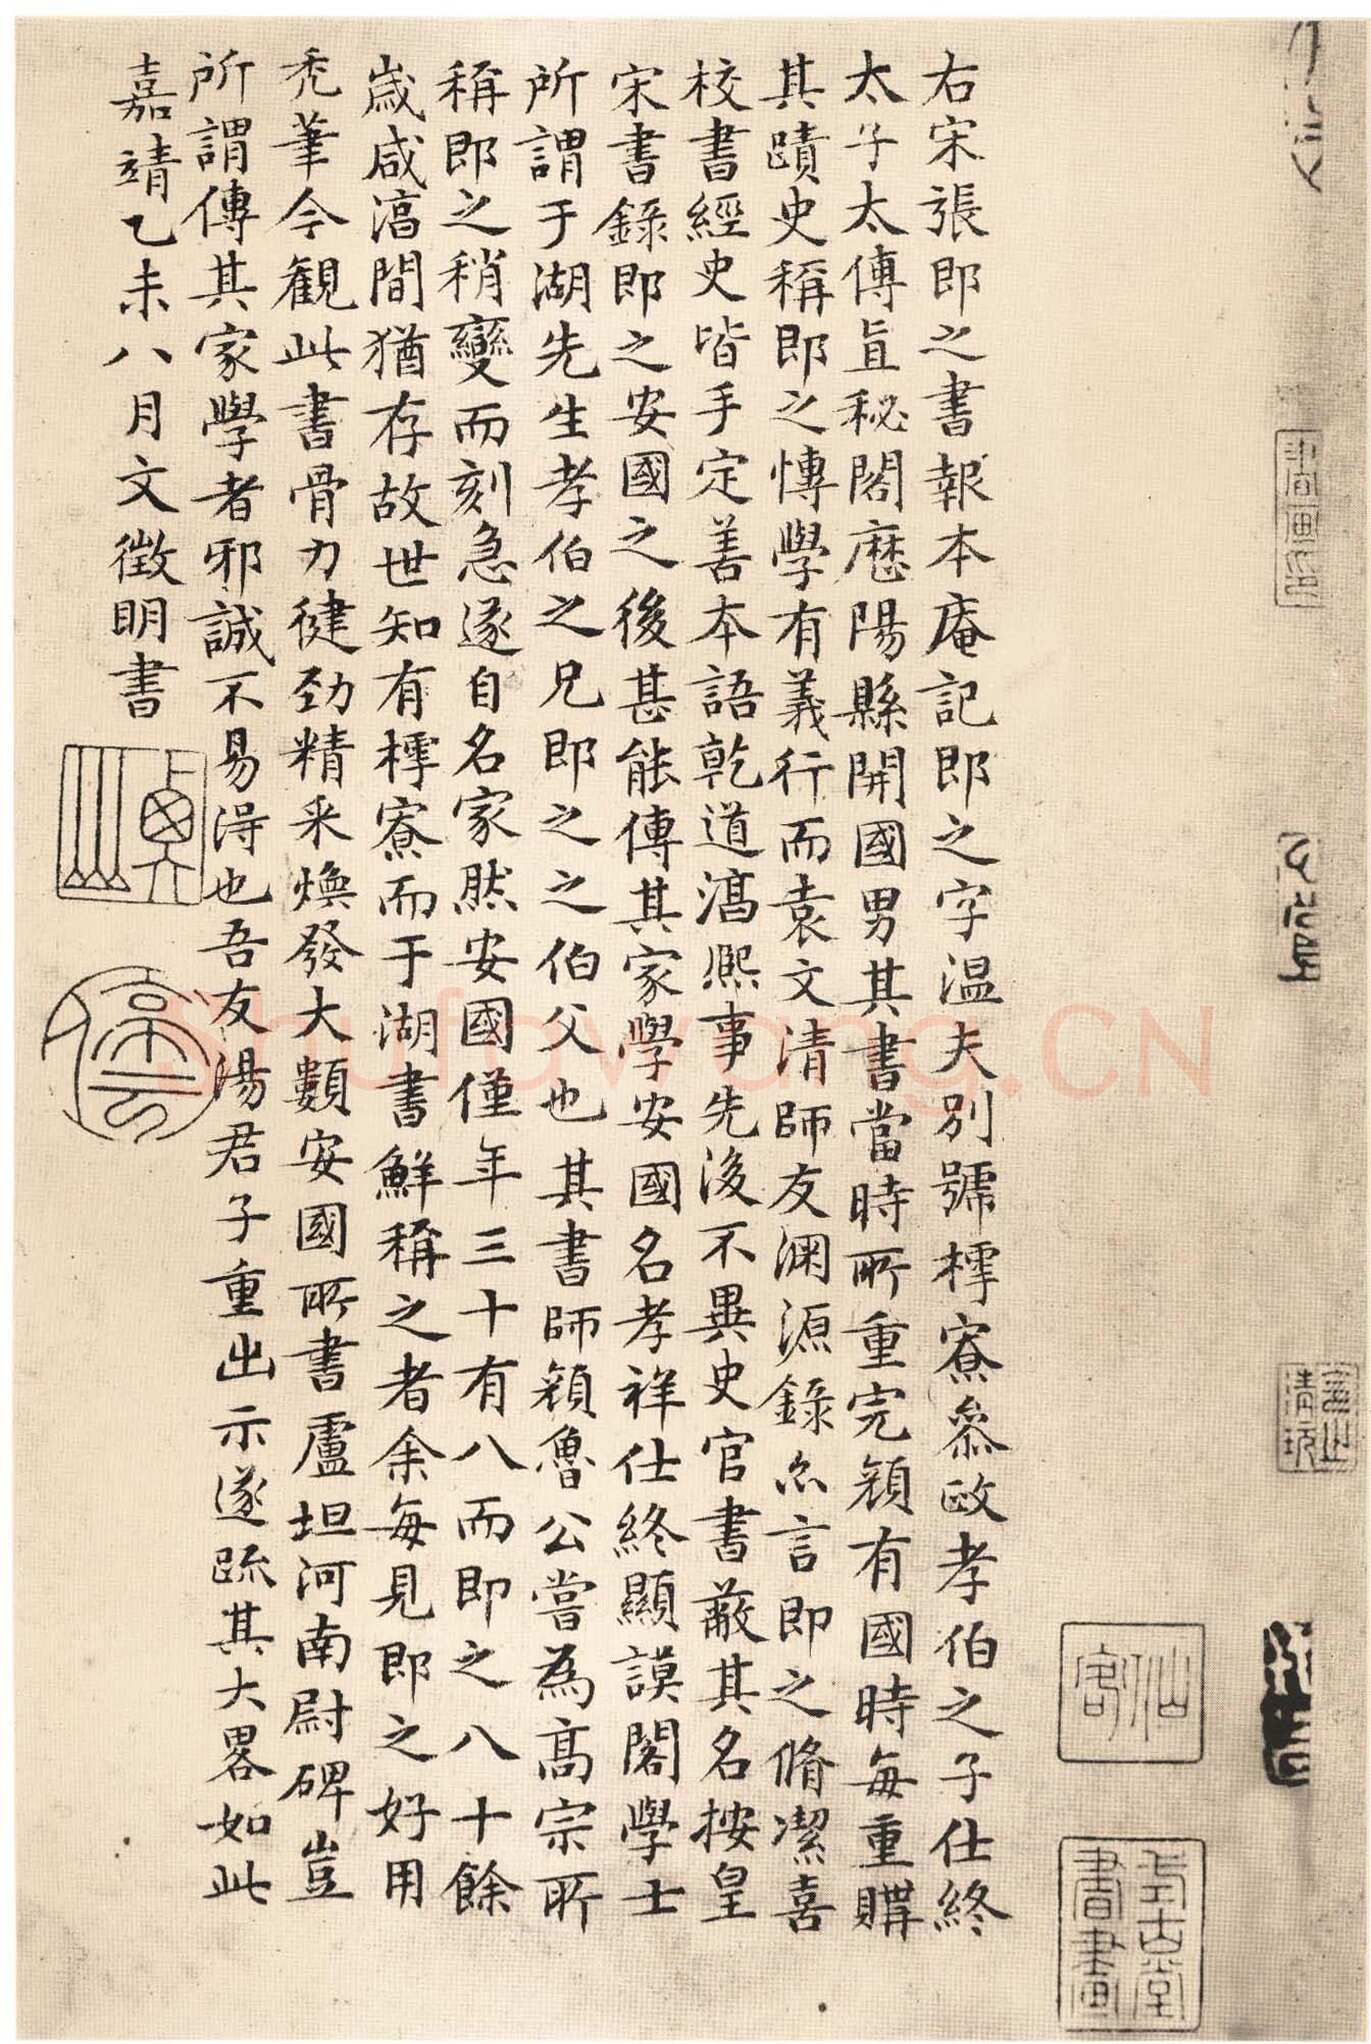 右宋張即之書報本庵記即之字温夫別號樗寮叅政孝伯之子仕終
太子太傅直秘閣歷陽縣開國男其書當時所重完顏有國時每重購
其蹟史稱即之慱學有義行而袁文清師友淵源錄亦言即之脩潔喜
校書經史皆手定善本語乾道淳熙事先後不異史官書蔽其名按皇
宋書錄即之安國之後甚能傳其家學安國名孝祥仕終顯謨閣學士
所謂于湖先生孝伯之兄即之之伯父也其書師顏魯公嘗為高宗所
稱即之稍變而刻急遂自名家然安國僅年三十有八而即之八十餘
歲咸淳間猶存故世知有樗寮而于湖書鮮稱之者余每見即之好用
禿筆今觀此書骨力健勁精采煥發大類安國所書盧坦河南尉碑豈
所謂傳其家學者邪誠不易得也吾友湯君子重出示遂疏其大畧如此
嘉靖乙未八月文徵明書
仙客
式古堂書畫
停雲
shufawang.CN